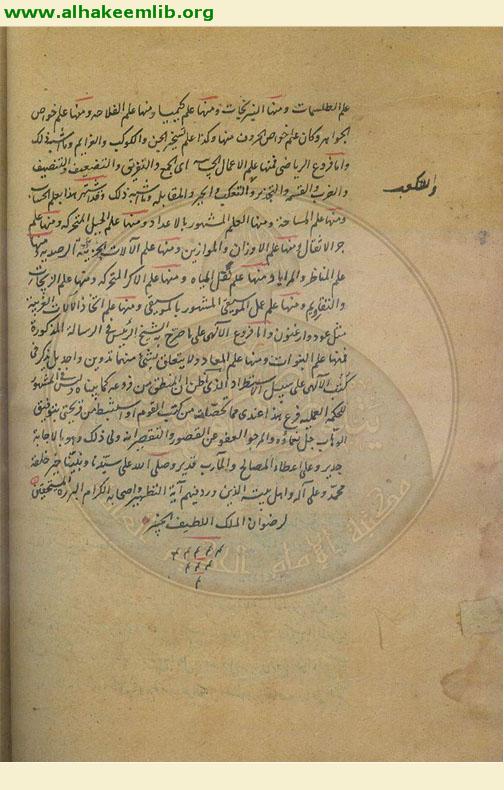 www.alhakeemlib.org
علم الطلسمات ومنها النيرنجات ومنها علم كيميا ومنها علم الفلاحه ومنها علم خواص
الجواهر وكان علم خواص الحروف منها وكذا علم تسخير الجن والكوكب والعزايم وما شبه ذلك
واما فروع الرياضي فمنها علم الاعمال الحساب اى الجمع والتفريق والتضعيف والتنصيف
والضرب والقسمه والتجذير والتكعب والجبر والمقابله وما اشبه ذلك وقد اشتهر بهذا بعلم الحساب
والتكعب
ومنها علم المساحة ومنها العلم المشهور بالاعداد ومنها علم الحيل المتحركه ومنها علم
جر الاثقال ومنها علم الاوزان والموازين ومنها علم الآلات الرصديه ومنها
علم المناظر والمرايا ومنها علم نقل المياه ومنها علم الاكر المتحركه ومنها علم الزيجات
والتقاويم ومنها علم عمل الموسيقى المشهور بالموسيقى ومنها علم اتخاذ الآلات الغريبة
مثل عود وارغنون واما فروع الآلهى على ما صرح به الشيخ الرئيس فى الرسالة المذكورة
فمنها علم النبوات ومنها علم المعاد ولا يتعلق بشئ منهما تدوين واحد بل يذكر فى
كتب الآلهى على سبيل الاستطراد الذى اظن ان المنطق من فروعه كما بيناه وليس المشهور
للحكمة العملية فرع هذا عندى مما تحصلناه من كتب القوم او استنبطنا من قريحتى بتوفيق
الوهاب جل نعماؤه والمرجو العفو عن القصور والتقصير انه ولى ذلك وهو بالاجابة
جدير وعلى اعطاء المصالح والمآرب قدير وصلى الله على سيدنا ونبينا خير خلقه
محمد وعلى آله واهل بيته الذين ورد فيهم آية التطهير واصحابه الكرام البررة المستحقين
لرضوان الملك اللطيف الخبير